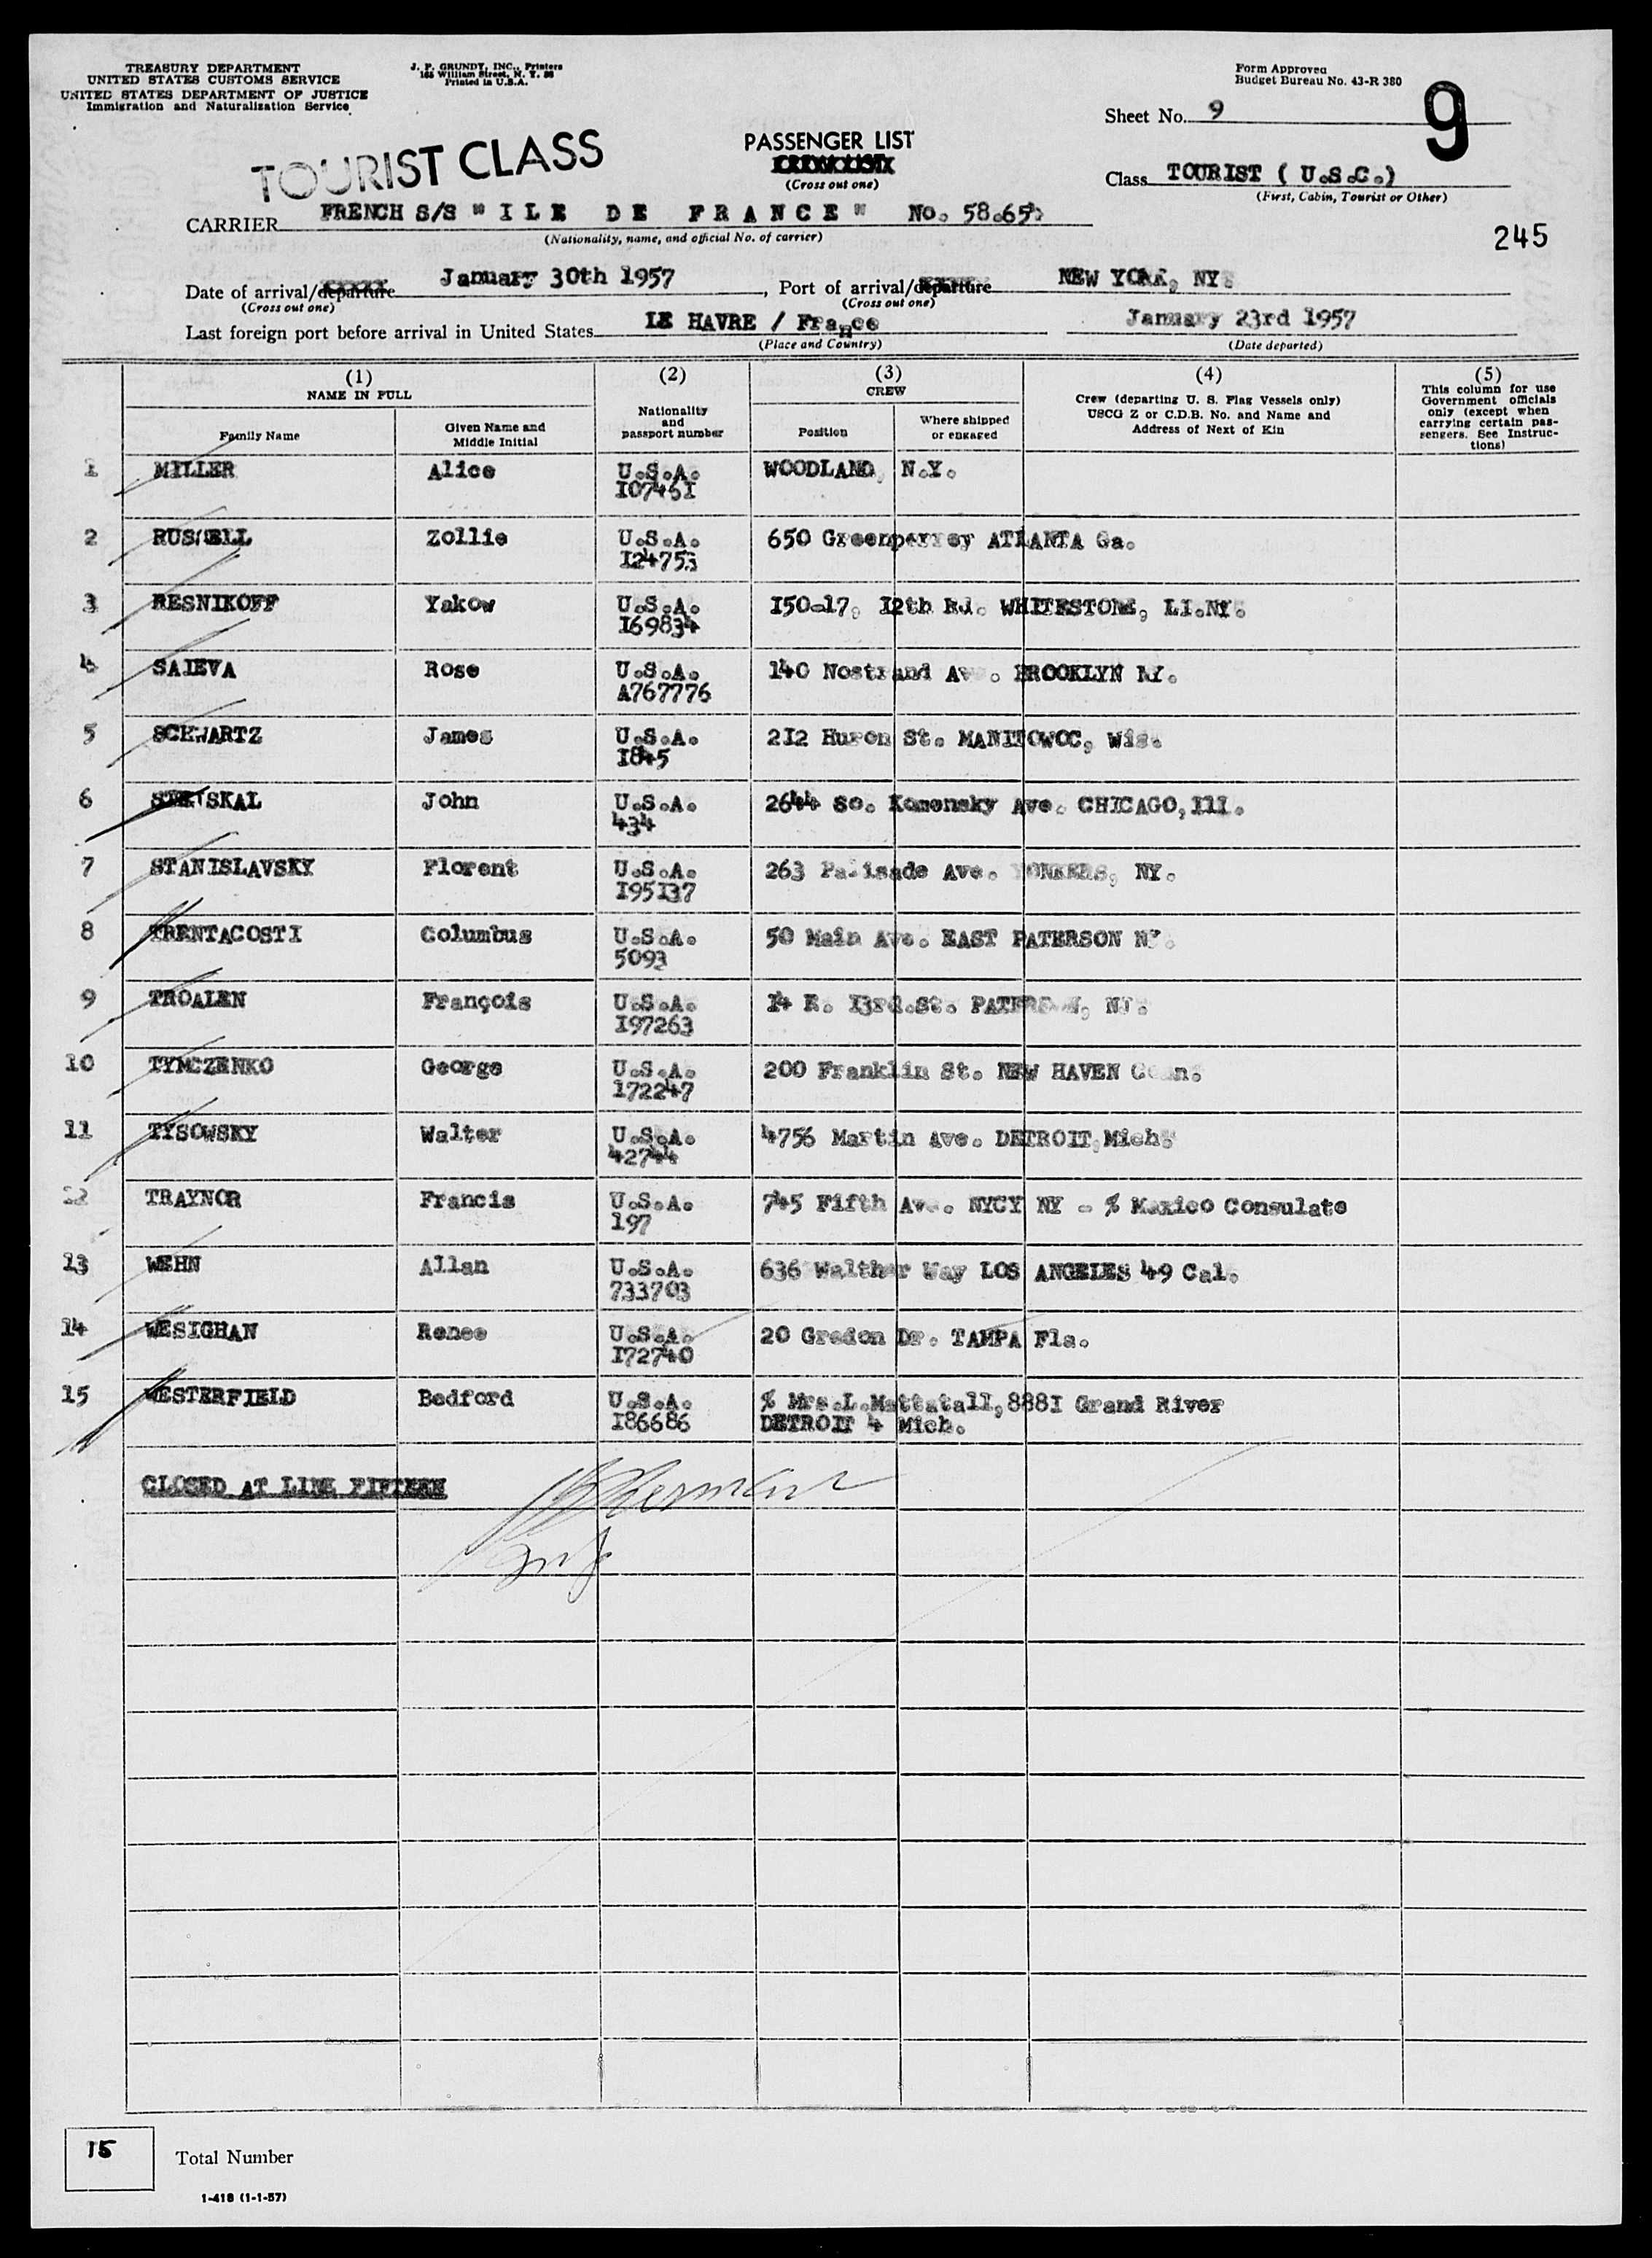 TREASURY DEPARTMENT
UNITED STATES CUSTOMS SERVICE
UNITED STATES DEPARTMENT OF JUSTICE
Immigration and Naturalization Service
J. P. GRUNDY, INC., Printers
165 William Street, N. Y. 38
Printed in U.S.A.
Form Approved
Budget Bureau No. 43-R 380
Sheet No. 9
9
TOURIST CLASS
PASSENGER LIST
(Cross out one)
Class TOURIST ( U.S.C.)
(First, Cabin, Tourist or Other)
CARRIER FRENCH S/S "ILE DE FRANCE" No. 58.65
(Nationality, name, and official No. of carrier)
245
Date of arrival/departure January 30th 1957, Port of arrival/departure NEW YORK, NY.
(Cross out one) (Cross out one)
Last foreign port before arrival in United States LE HAVRE / France January 23rd 1957
(Place and Country) (Date departed)
(1) NAME IN FULL
Family Name
Given Name and Middle Initial
(2)
Nationality and passport number
(3) CREW
Position
Where shipped or engaged
(4)
Crew (departing U. S. Flag Vessels only)
USCG Z or C.D.B. No. and Name and
Address of Next of Kin
(5)
This column for use
Government officials
only (except when
carrying certain pas-
sengers. See Instruc-
tions)
1 MILLER Alice U.S.A. WOODLAND, N.Y.
I07461
2 RUSSELL Zollie U.S.A. 650 ATLANTA Ga.
I24753
3 RESNIKOFF Yakow U.S.A. I50-17, I2th Rd. WHITESTONE, LI.NY.
I69834
4 SAIEVA Rose U.S.A. 140 Nostrand Av. BROOKLYN NY.
A767776
5 SCHWARTZ James U.S.A. 2I2 Huron St. MANITOWOC, Wis.
I845
6 John U.S.A. 2644 So. Komensky Ave. CHICAGO, Ill.
434
7 STANISLAVSKY Florent U.S.A. 263 Palisade Ave. YONKERS, NY.
I95I37
8 TRENTACOSTI Columbus U.S.A. 50 Main Ave. EAST PATERSON
5093
9 TROALEN François U.S.A. I4 E. I3rd.St. PATERSON, NJ.
I97263
10 TYMCZENKO George U.S.A. 200 Franklin St. NEW HAVEN Conn.
172247
11 TYSOWSKY Walter U.S.A. 4756 Martin Ave. DETROIT, Mich.
42744
12 TRAYNOR Francis U.S.A. 745 Fifth Ave. NYCY NY - % Mexico Consulate
197
13 WEHN Allan U.S.A. 636 Walther Way LOS ANGELES 49 Cal.
733703
14 WESIGHAN Renee U.S.A. 20 Gredon Dr. TAMPA Fla.
I72740
15 WESTERFIELD Bedford U.S.A. % Mrs.L.Mattatall, 888I Grand River
I86686 DETROIT 4 Mich.
CLOSED AT LINE FIFTEEN
15 Total Number
1-418 (1-1-57)